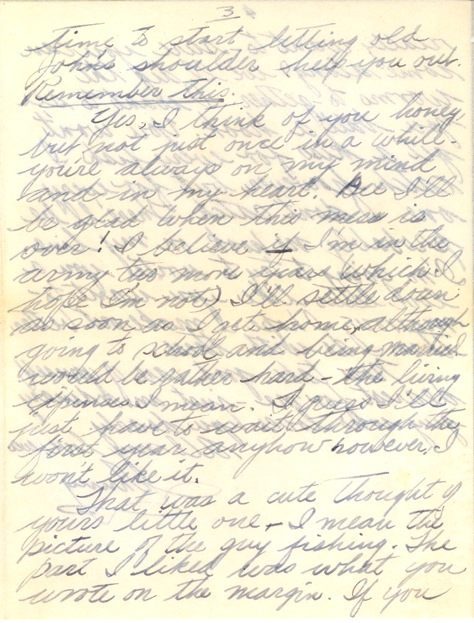 3
time to start letting old
John's shoulder help you out.
Remember this.
Yes, I think of you honey
but not just once in a while -
you're always on my mind
and in my heart. Gee I'll
be glad when this mess is
over! I believe if I'm in the
army two more years which I
hope I'm not) I'll settle down
as soon as I get home, although
going to school and being married
would be rather hard - the living
expenses I mean. I guess I'll
just have to wait through the
first year anyhow however, I
won't like it.
That was a cute thought of
yours little one - I mean the
picture of the guy fishing. The
part I liked was what you
wrote on the margin. If you